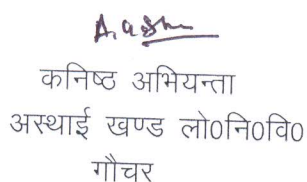 कनिष्ठ अभियन्ता
अस्थाई खण्ड लो०नि०वि०
गौचर